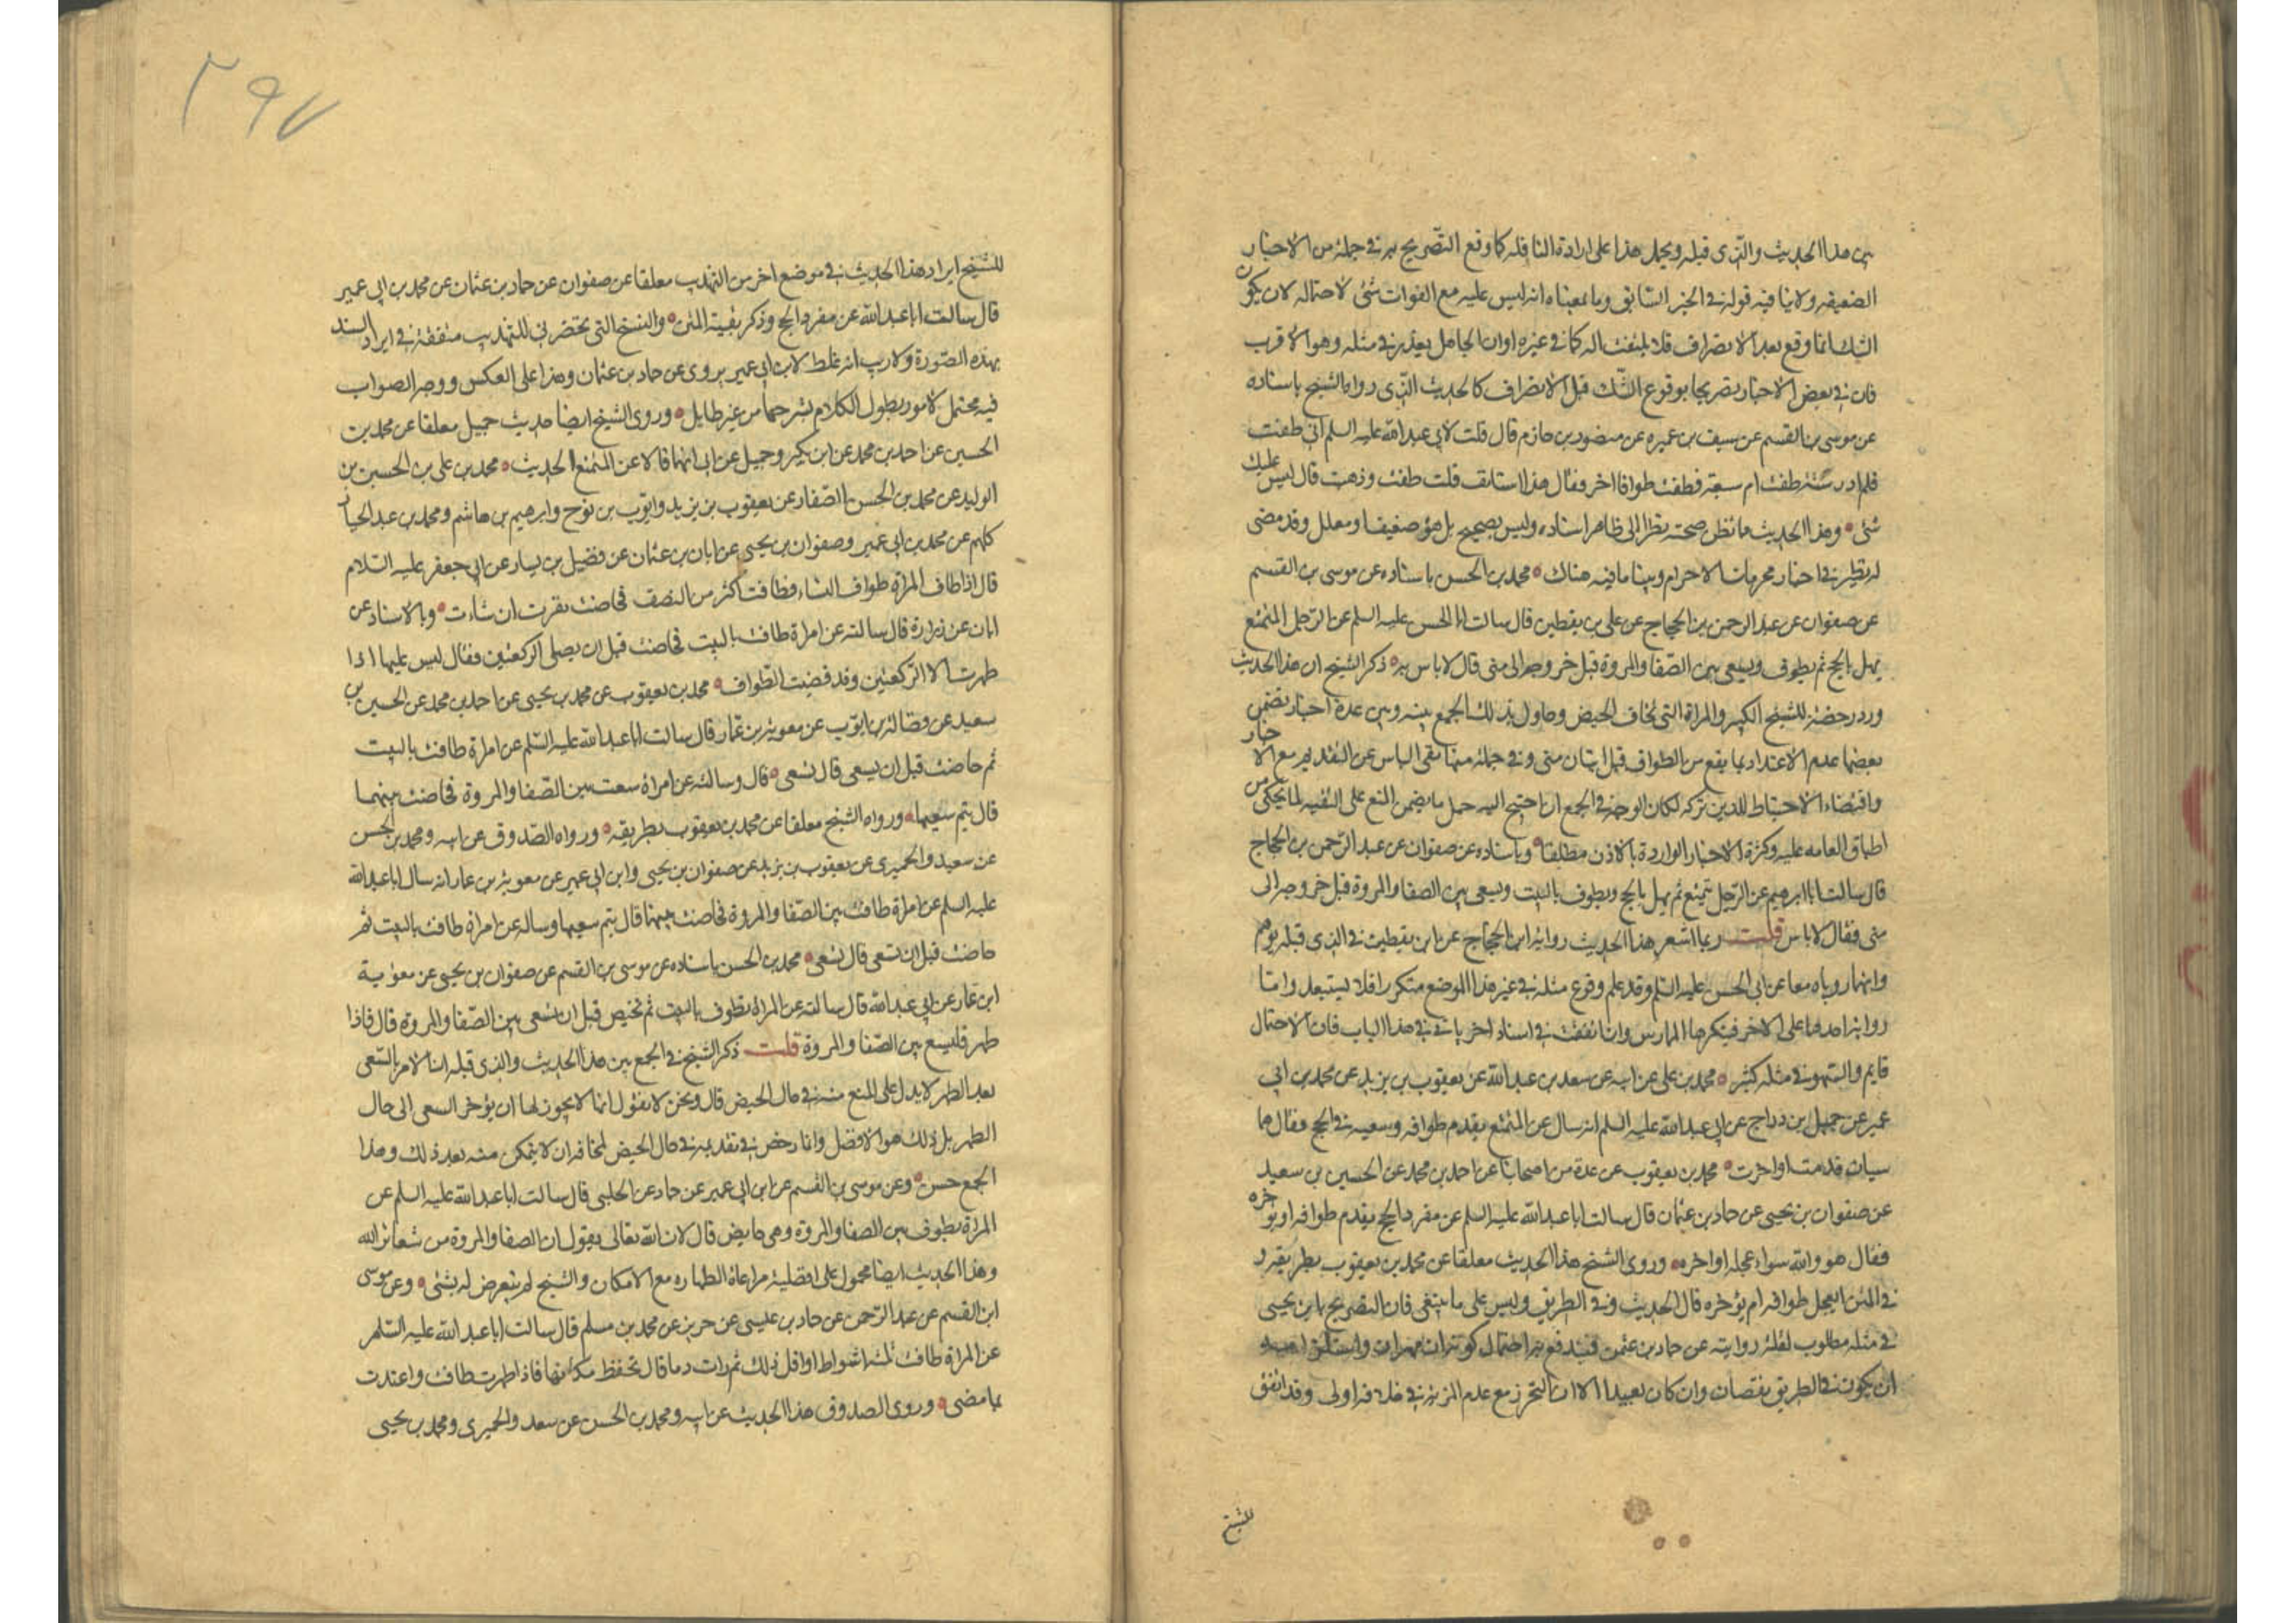 بين هذا الحديث والذى قبله ويحمل هذا على ارادة النافله كما وقع التصريح به فى جملة من الاخبار
الضعيفه ولاينا فيه قوله فى الخبر السابق وما بمعناه انه ليس عليه مع الفوات شئ لاحتماله لان يكون
الشك انما وقع بعد الانصراف فلا يلتفت اليه كما فى غيره اوان الجاهل يعذر فى مثله وهو الاقرب
فان فى بعض الاخبار تصريحا بوقوع الشك قبل الانصراف كالحديث الذى رواه الشيخ باسناده
عن موسى بن القسم عن سيف بن عميره عن منصور بن حازم قال قلت لابى عبد الله عليه السلم انى طفت
فلم ادر ستة طفت ام سبعة فطفت طوافا اخر فقال هلا استانفت قلت طفت وذهبت قال ليس عليك
شئ وهذا الحديث مما تظن صحته نظرا الى ظاهر اسناده وليس بصحيح بل هو ضعيف او معلل وقد مضى
له نظير فى اخبار محرمات الاحرام وبينا ما فيه هناك محمد بن الحسن باسناده عن موسى بن القسم
عن صفوان عن عبد الرحمن بن الحجاج عن على بن يقطين قال سالت ابا الحسن عليه السلم عن الرجل المتمتع
يهل بالحج ثم يطوف ويسعى بين الصفا والمروة قبل خروجه الى منى قال لا باس به ذكر الشيخ ان هذا الحديث
ورد رخصة للشيخ الكبير والمراة التى تخاف الحيض وحاول بذلك الجمع بينه وبين عدة اخبار تضمن
بعضها عدم الاعتداد بما يقع من الطواف قبل اتيان منى وفى جملة منها نفى الباس عن التقديم مع الاخبار
واقتضاء الاحتياط للدين تركه لكان الوجه فى الجمع ان احتيج اليه حمل ما يضمن المنع على التقيه لما يحكى من
اطباق العامه عليه وكثرة الاخبار الواردة بالاذن مطلقا وباسناده عن صفوان عن عبد الرحمن بن الحجاج
قال سالت ابا ابرهيم عن الرجل يتمتع ثم يهل بالحج ويطوف بالبيت ويسعى بين الصفا والمروة قبل خروجه الى
منى فقال لا باس قلت ربما اشعر هذا الحديث رواية ابن الحجاج عن ابن يقطين فى الذى قبله يوهم
وانهما روياه معا عن ابى الحسن عليه السلم وقد علم وقوع مثله فى غير هذا الموضع متكررا فلا يستبعد واما
رواية احدهما على الاخر فينكرها الممارس وان اتفقت فى اسناد اخر ياتى فى هذا الباب فان الاحتمال
قايم والسهو فى مثله كثير محمد بن على عن ابيه عن سعد بن عبد الله عن يعقوب بن يزيد عن محمد بن ابى
عمير عن جميل بن دراج عن ابى عبد الله عليه السلم انه سال عن المتمتع يقدم طوافه وسعيه فى الحج فقال هما
سيان قدمت او اخرت محمد بن يعقوب عن عدة من اصحابنا عن احمد بن محمد عن الحسين بن سعيد
عن صفوان بن يحيى عن حماد بن عثمان قال سالت ابا عبد الله عليه السلم عن مفرد الحج يقدم طوافه او يؤخره
فقال هو والله سواء عجله او اخره وروى الشيخ هذا الحديث معلقا عن محمد بن يعقوب بطريقه و
فى المتن ايعجل طوافه ام يؤخره قال الحديث وفى الطريق وليس على ما ينبغى فان التصريح بابن يحيى
فى مثله مطلوب لقلة روايته عن حماد بن عثمن فيندفع به احتمال كونه ابن مهران
ان يكون فى الطريق نقصان وان كان بعيدا الا ان التحرز مع عدم المزية فى خلافه اولى وقد اتفق
للشيخ
٢٩٧
للشيخ ايراد هذا الحديث فى موضع اخر من التهذيب معلقا عن صفوان عن حماد بن عثمان عن محمد بن ابى عمير
قال سالت ابا عبد الله عن مفرد الحج وذكر بقية المتن والنسخ التى تحضرنى للتهذيب متفقة فى ايراد السند
بهذه الصورة ولا ريب انه غلط لابن ابى عمير يروى عن حماد بن عثمان وهذا على العكس ووجه الصواب
فيه محتمل لامور يطول الكلام بشرحها من غير طايل وروى الشيخ ايضا حديث جميل معلقا عن محمد بن
الحسين عن احمد بن محمد عن ابن بكير وجميل عن ابى انهما قالا عن المتمتع الحديث محمد بن على بن الحسين بن
الوليد عن محمد بن الحسن الصفار عن يعقوب بن يزيد وايوب بن نوح وابرهيم بن هاشم ومحمد بن عبد الجبار
كلهم عن محمد بن ابى عمير وصفوان بن يحيى عن ابان بن عثمان عن فضيل بن يسار عن ابى جعفر عليه السلام
قال اذا طاف المراة طواف النساء فطافت اكثر من النصف فحاضت نفرت ان شاءت وبالاسناد عن
ابان عن زرارة قال سالته عن امراة طافت بالبيت فحاضت قبل ان يصلى الركعتين فقال ليس عليها اذا
طهرت الا الركعتين وقد قضيت الطواف محمد بن يعقوب عن محمد بن يحيى عن احمد بن محمد عن الحسين بن
سعيد عن فضالة بن ايوب عن معوية بن عمار قال سالت ابا عبد الله عليه السلم عن امراة طافت بالبيت
ثم حاضت قبل ان يسعى قال تسعى قال وسالته عن امراة سعت بين الصفا والمروة فحاضت بينهما
قال يتم سعيها ورواه الشيخ معلقا عن محمد بن يعقوب بطريقه ورواه الصدوق عن ابيه ومحمد بن الحسن
عن سعيد والحميرى عن يعقوب بن يزيد عن صفوان بن يحيى وابن ابى عمير عن معوية بن عمار انه سال ابا عبد الله
عليه السلم عن امراة طافت بين الصفا والمروة فحاضت بينهما قال يتم سعيها وساله عن امراة طافت بالبيت ثم
حاضت قبل ان تسعى قال تسعى محمد بن الحسن باسناده عن موسى بن القسم عن صفوان بن يحيى عن معوية
ابن عمار عن ابى عبد الله قال سالته عن المراة تطوف بالبيت ثم تحيض قبل ان تسعى بين الصفا والمروة قال فاذا
طهر فليسع بين الصفا والمروة قلت ذكر الشيخ فى الجمع بين هذا الحديث والذى قبله ان الامر بالسعى
بعد الطهر لا يدل على المنع منه فى حال الحيض قال ونحن لا نقول انما لا يجوز لها ان يؤخر السعى الى حال
الطهر بل ذلك هو الافضل وانما رخص فى تقديمه فى حال الحيض لمخافه ان لا يتمكن منه بعد ذلك وهذا
الجمع حسن وعن موسى بن القسم عن ابن ابى عمير عن حماد عن الحلبى قال سالت ابا عبد الله عليه السلم عن
المراة تطوف بين الصفا والمروة وهى حايض قال لان الله تعالى يقول ان الصفا والمروة من شعائر الله
وهذا الحديث ايضا محمول على افضلية مراعاة الطهاره مع الامكان والشيخ لم يتعرض له بشئ وعن موسى
ابن القسم عن عبد الرحمن عن حماد بن عيسى عن حريز عن محمد بن مسلم قال سالت ابا عبد الله عليه السلم
عن المراة طافت ثلثة اشواط او اقل ذلك ثم رات دما قال تحفظ مكانها فاذا طهرت طافت واعتدت
بما مضى وروى الصدوق هذا الحديث عن ابيه ومحمد بن الحسن عن سعد والحميرى ومحمد بن يحيى